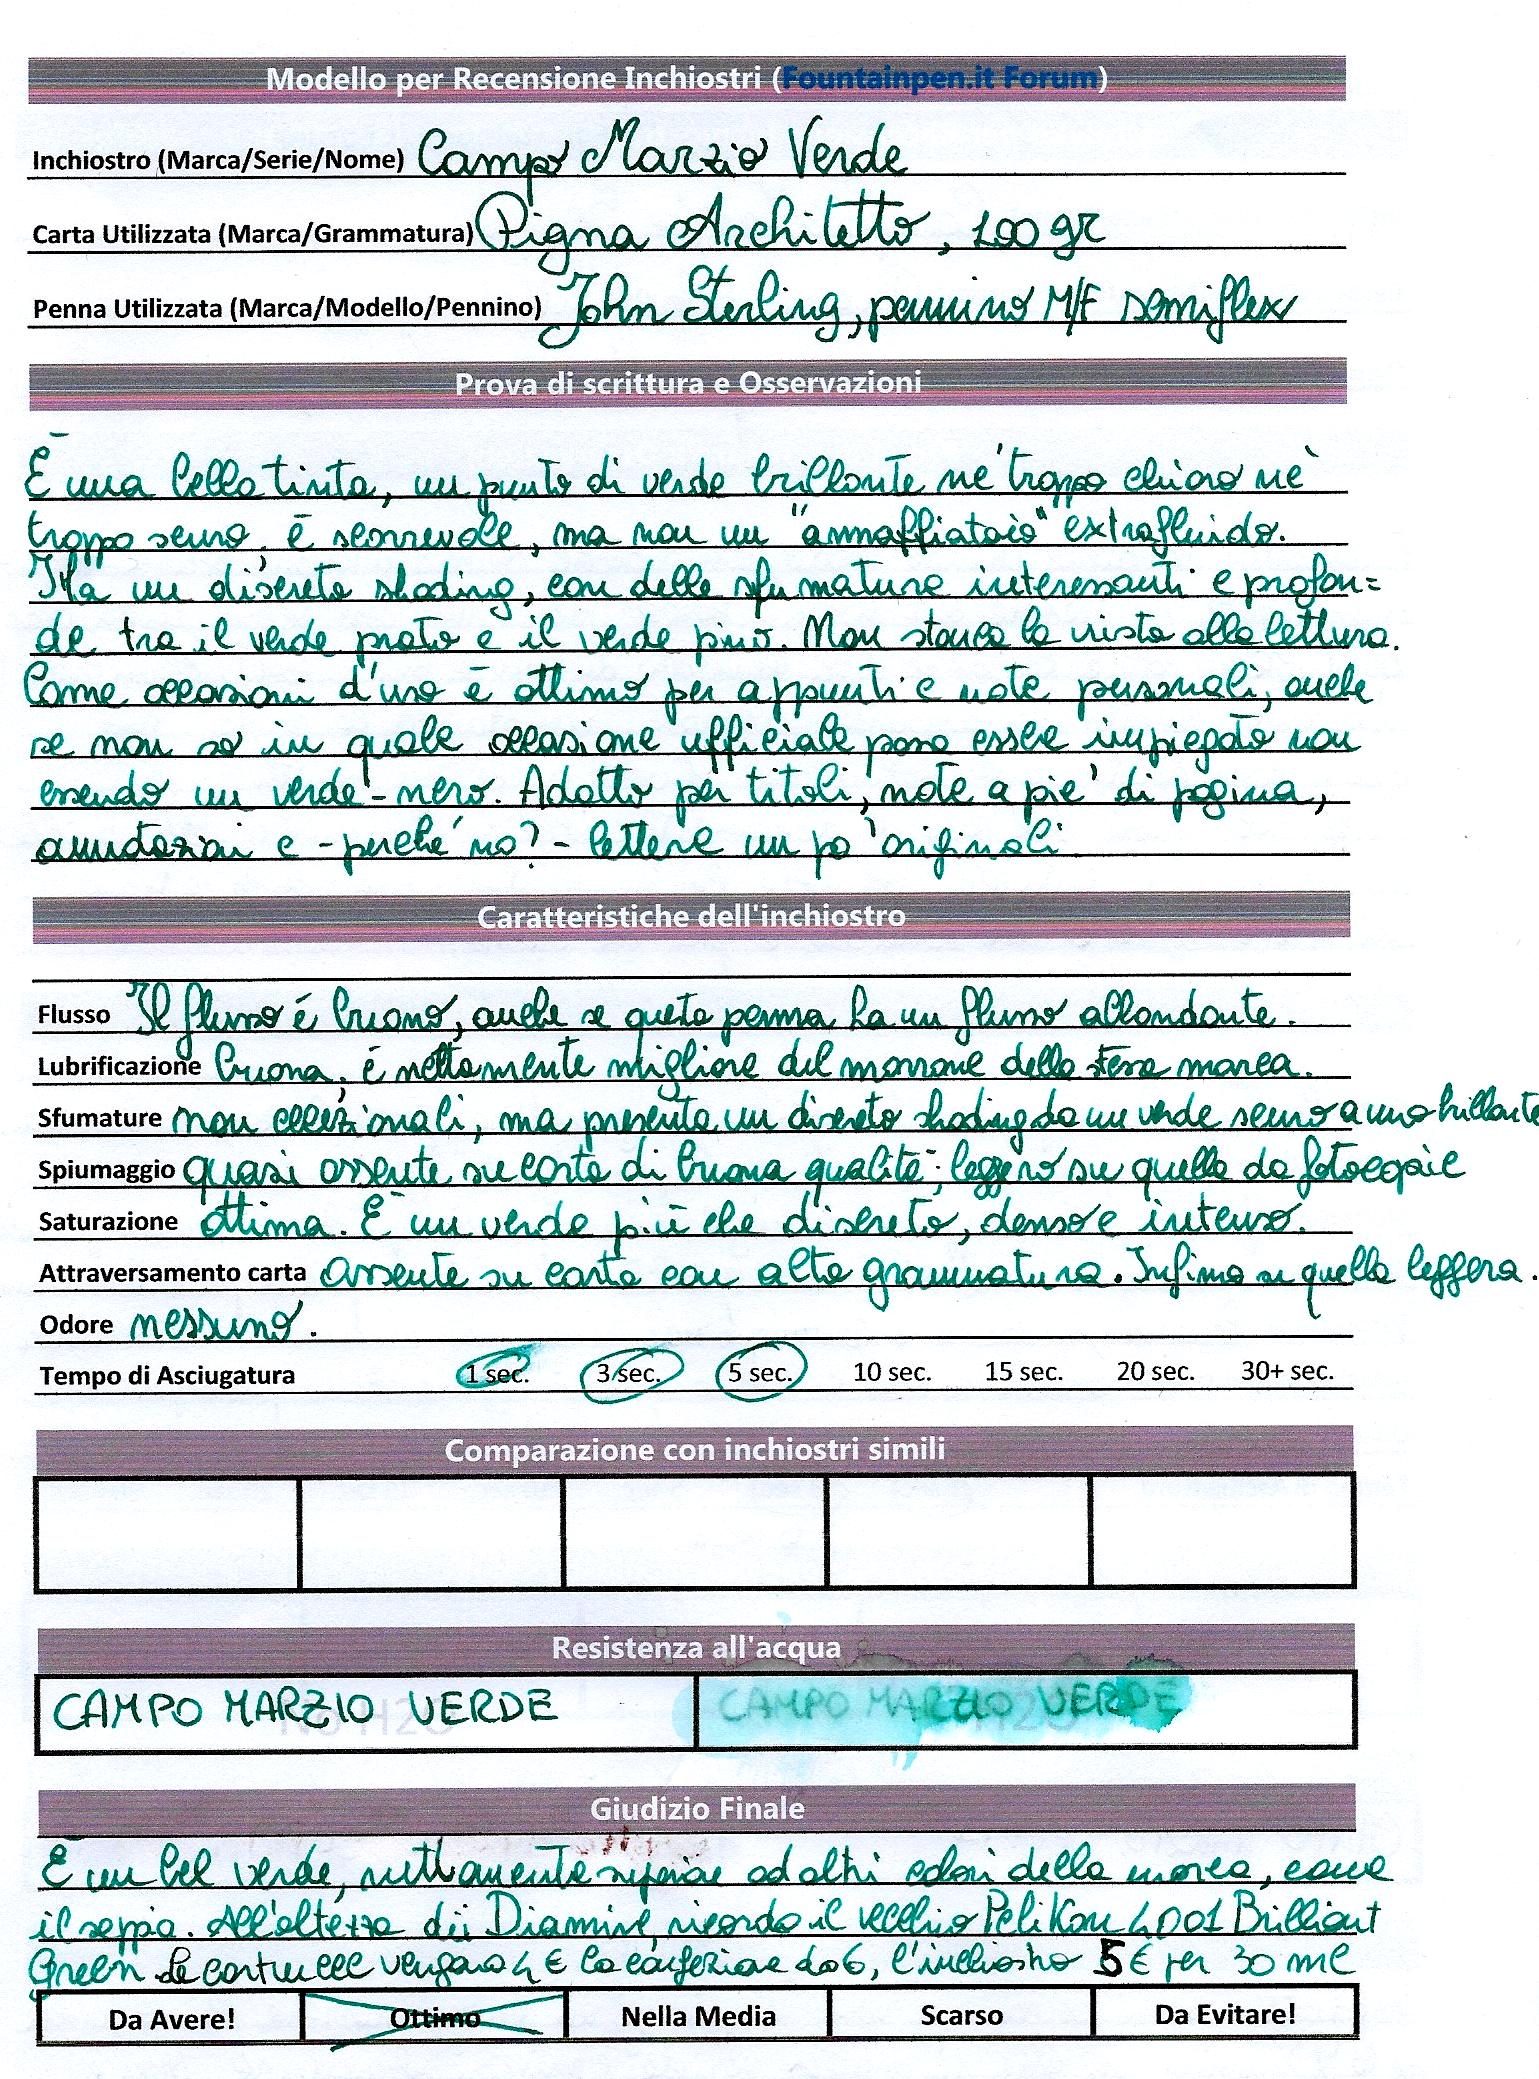 Modello per Recensione Inchiostri (Fountainpen.it Forum)
Inchiostro (Marca/Serie/Nome) Campo Marzio Verde
Carta Utilizzata (Marca/Grammatura) Pigna Architetto, 100 gr
Penna Utilizzata (Marca/Modello/Pennino) John Sterling, pennino M/F semiflex
Prova di scrittura e Osservazioni
È una bella tinta, un punto di verde brillante né troppo chiaro nè
troppo scuro, è scorrevole, ma non un "annaffiatoio" extrafluido.
Ha un discreto shading, con delle sfumature interessanti e profon=
de tra il verde prato e il verde pino. Non stanca la vista alla lettura.
Come occasioni d'uso è ottimo per appunti e note personali, anche
se non so in quale occasione ufficiale possa essere impiegato non
essendo un verde-nero. Adatto per titoli, note a pie' di pagina,
annotazioni e - perché no? - lettere un po' originali
Caratteristiche dell'inchiostro
Flusso Il flusso é buono, anche se questa penna ha un flusso abbondante.
Lubrificazione buona, é nettamente migliore del marrone della stessa marca.
Sfumature non eccezionali, ma presenta un discreto shading da un verde scuro a uno brillante
Spiumaggio quasi assente su carta di buona qualità; leggero su quella da fotocopie
Saturazione ottima. È un verde più che discreto, denso e intenso.
Attraversamento carta assente su carta con alta grammatura. Infimo su quella leggera.
Odore nessuno.
Tempo di Asciugatura 1 sec. 3 sec. 5 sec. 10 sec. 15 sec. 20 sec. 30+ sec.
Comparazione con inchiostri simili
Resistenza all'acqua
CAMPO MARZIO VERDE CAMPO MARZIO VERDE
No H2O H2O
Giudizio Finale
È un bel verde, nettamente superiore ad altri colori della marca, come
il seppia. All'altezza dei Diamine, ricorda il vecchio Pelikan 4001 Brilliant
Green Le cartucce vengono 4 € la confezione da 6, l'inchiostro 5 € per 30 ml
Da Avere! Ottimo Nella Media Scarso Da Evitare!